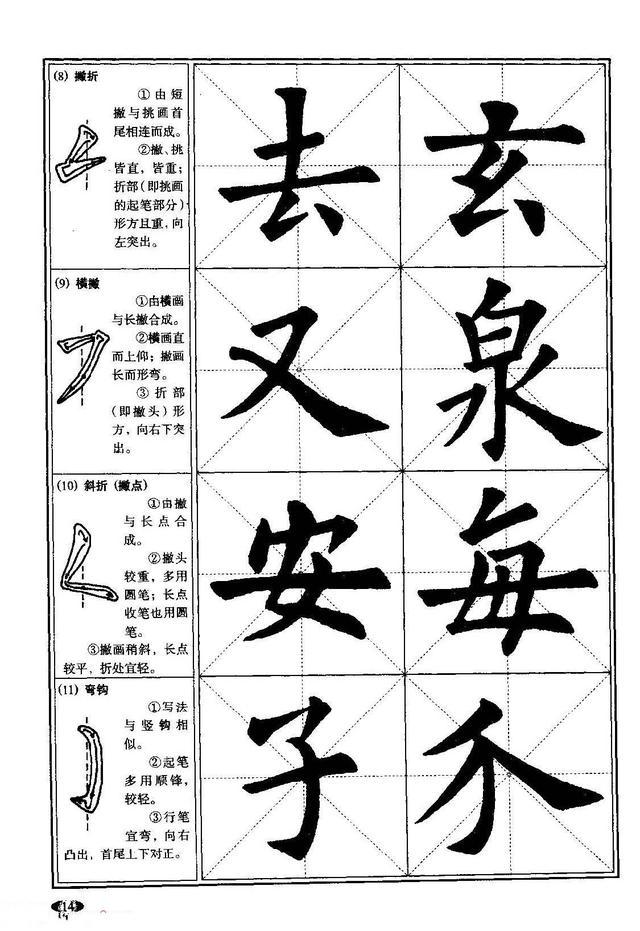 (8) 撇折
①由短
撇与挑画首
尾相连而成。
②撇、挑
皆直，皆重；
折部（即挑画
的起笔部分）
形方且重，向
左突出。
去 玄
(9) 横撇
①由横画
与长撇合成。
②横画直
而上仰；撇画
长而形弯。
③折部
（即撇头）形
方，向右下突
出。
又 泉
(10) 斜折 (撇点)
①由撇
与长点合
成。
②撇头
较重，多用
圆笔；长点
收笔也用圆
笔。
③撇画稍斜，长点
较平，折处宜轻。
安 每
(11) 弯钩
①写法
与竖钩相
似。
②起笔
多用顺锋，
较轻。
③行笔
宜弯，向右
凸出，首尾上下对正。
子
14